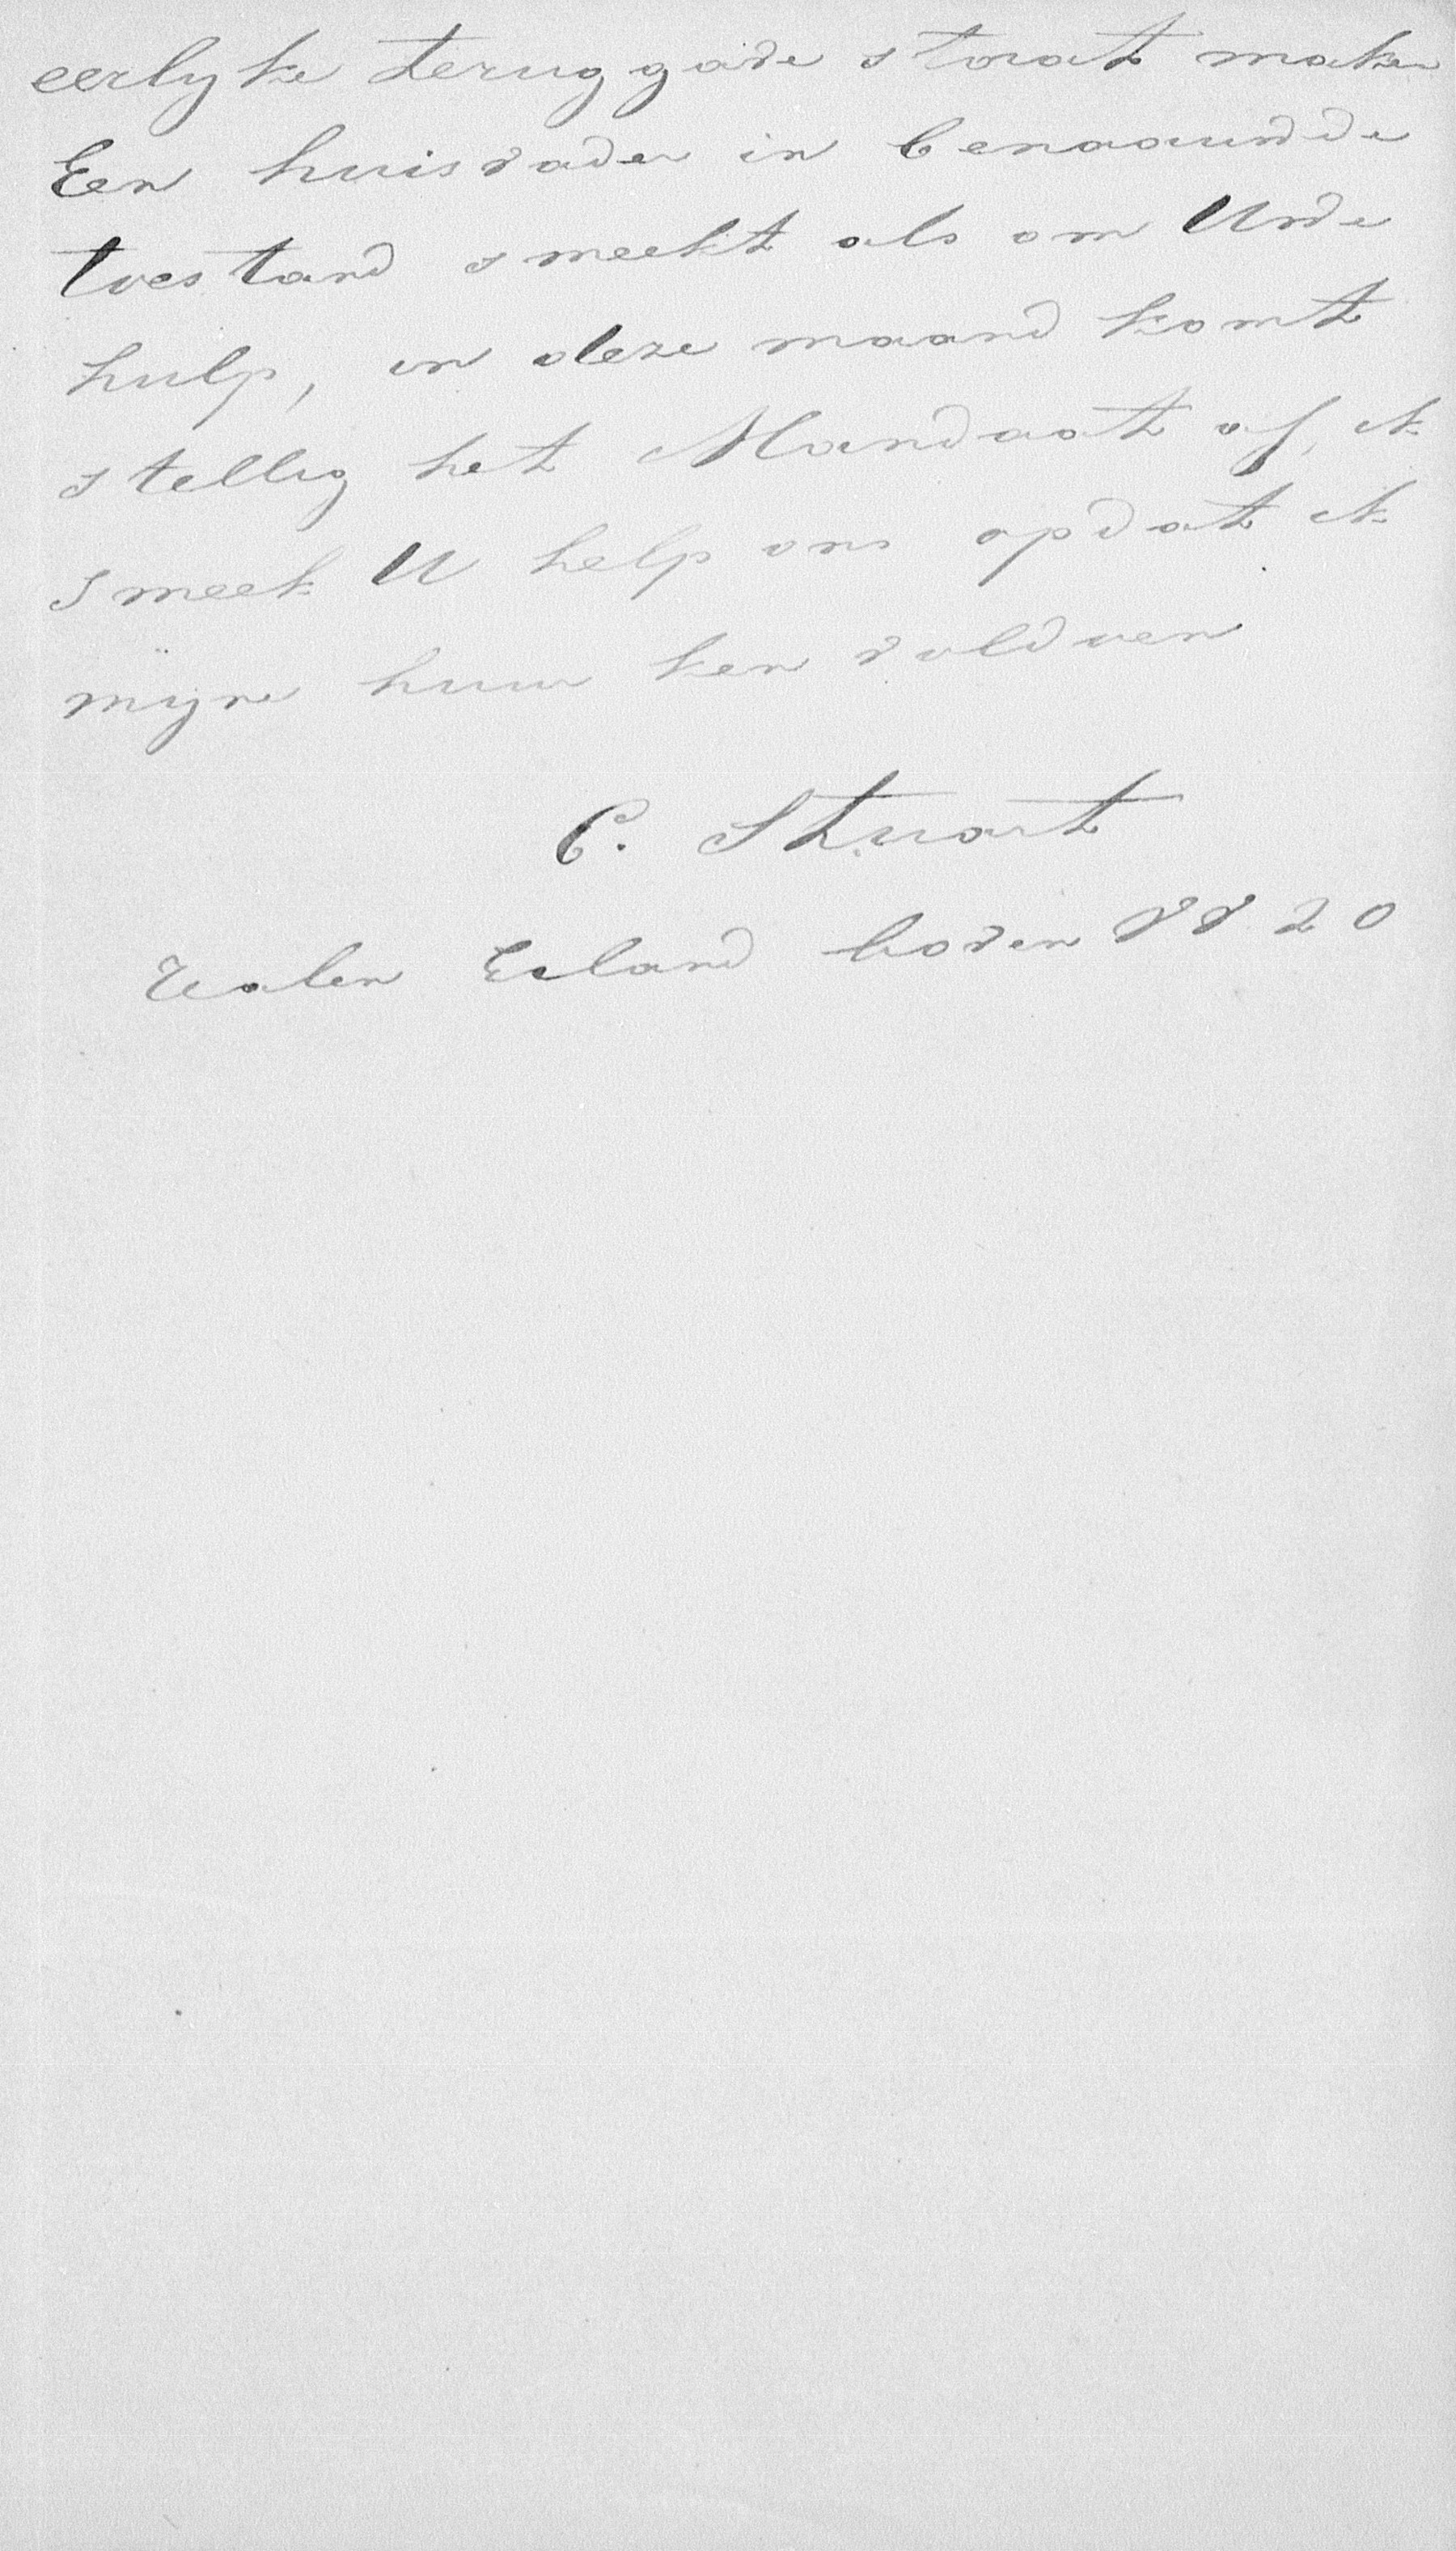 eerlyke teruggave staat maken
Een huisvader in benaauwde
toestand smeekt als om Uwde
hulp, in deze maand komt
stellig het Mandaat af, ik
smeek U help ons opdat ik
mijne huur kan voldoen
C. Stuart
Realen Eiland boven VV 20